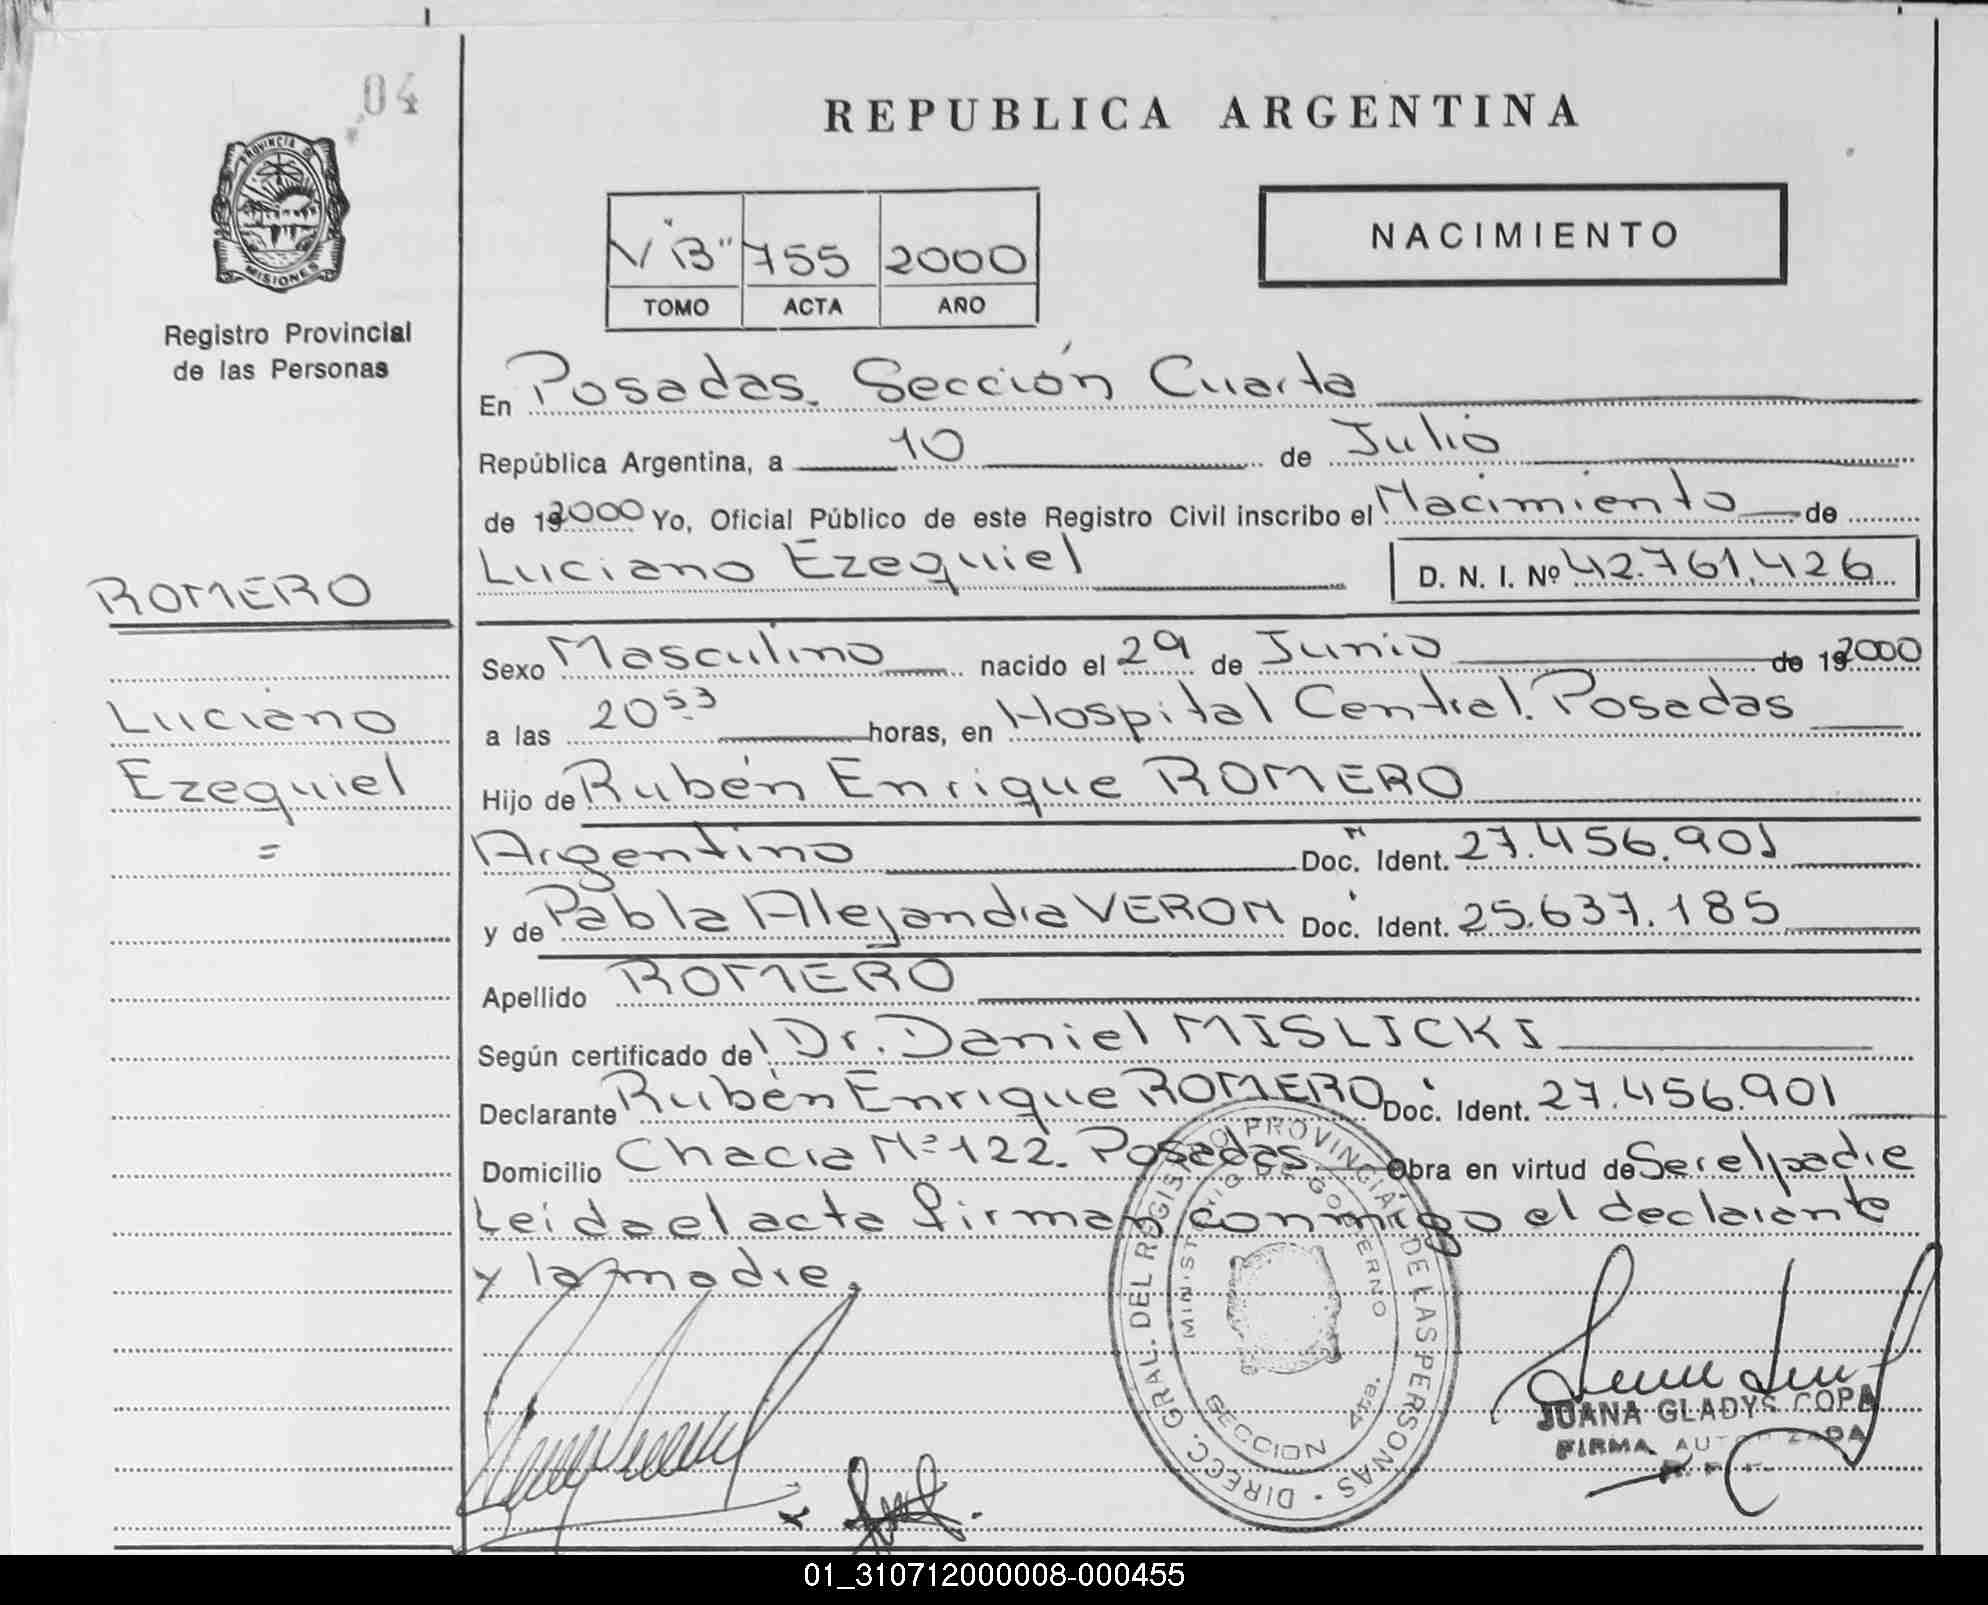 04
PROVINCIA DE
MISIONES
Registro Provincial
de las Personas
REPUBLICA ARGENTINA
V "B" 755 2000
TOMO ACTA AÑO
NACIMIENTO
En Posadas. Sección Cuarta
República Argentina, a 10 de Julio
de 192000 Yo, Oficial Público de este Registro Civil inscribo el Nacimiento de
Luciano Ezequiel D. N. I. Nº 42.761.426
ROMERO
Luciano
Ezequiel
=
Sexo Masculino nacido el 29 de Junio de 192000
a las 20.53 horas, en Hospital Central. Posadas
Hijo de Rubén Enrique ROMERO
Argentino Doc. Ident. 27.456.901
y de Pabla Alejandra VERON Doc. Ident. 25.637.185
Apellido ROMERO
Según certificado de Dr. Daniel MISLICKI
Declarante Rubén Enrique ROMERO Doc. Ident. 27.456.901
Domicilio Chacra Nº 122. Posadas. Obra en virtud de Ser el padre
Leida el acta firman conmigo el declarante
y la madre.
DIRECC. GRAL. DEL REGISTRO PROVINCIAL DE LAS PERSONAS
MINISTERIO DE GOBIERNO
SECCION 4ta.
JUANA GLADYS COPA
FIRMA AUTORIZADA
01_310712000008-000455